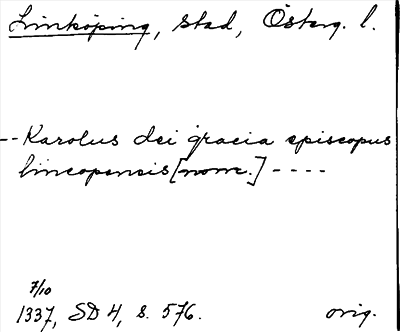 Linköping, stad, Österg. l.
-- Karolus dei gracia episcopus
lincopensis [nom.] ----
7/10
1337, SD 4, s. 576. orig.